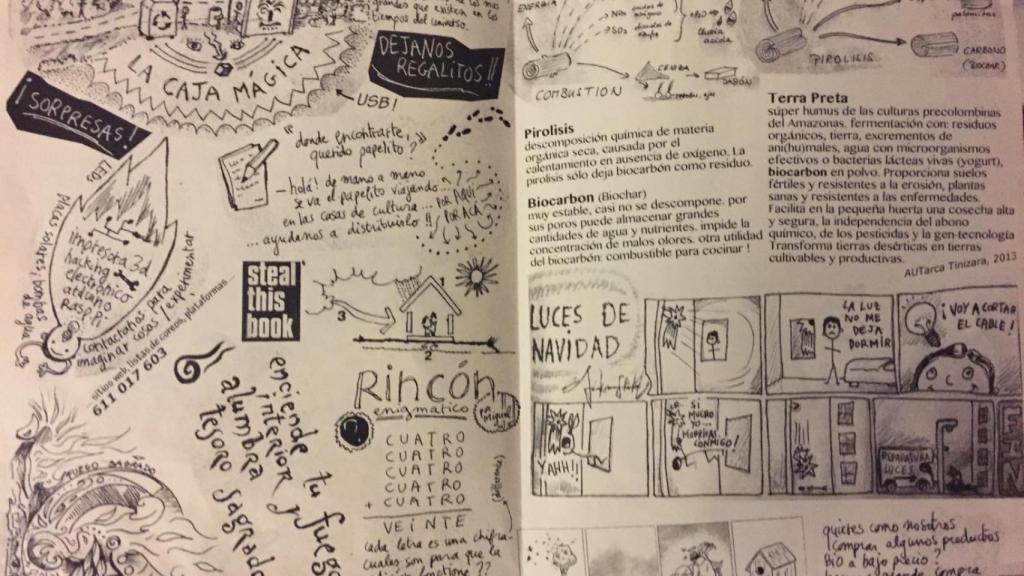 grandes que existen en los
tiempos del universo.
LA CAJA MÁGICA
DEJANOS
REGALITOS!!
USB!
¡SORPRESAS!
"donde encontrarte,
querido papelito?"
- hola! de mano a mano
se va el papelito viajando...
en las casas de cultura...
... ayudanos a distribuirlo!!
POR AQUÍ
POR ACÁ
LEDs
impresora 3d
hacking
electrónica
arduino
RasPi
contactanos para
imaginar cosas / experimentar
sitios web, listas de correos, plataformas...
611 017 603
steal
this
book
1
2
3
enciende tu fuego
interior y
alumbra
tesoro sagrado
Rincón
enigmático
CUATRO
CUATRO
CUATRO
CUATRO
+ CUATRO
VEINTE
cada letra es una cifra
cuales son para que la
ENERGIA
NOx
SO2
lluvia
acida
COMBUSTION
CENIZA
JABÓN
PIROLISIS
CARBONO
(BIOCHAR)
Pirolisis
descomposición química de materia
orgánica seca, causada por el
calentamiento en ausencia de oxígeno. La
pirolisis sólo deja biocarbón como residuo.
Biocarbon (Biochar)
muy estable, casi no se descompone. por
sus poros puede almacenar grandes
cantidades de agua y nutrientes. impide la
concentración de malos olores. otra utilidad
del biocarbón: combustible para cocinar !
Terra Preta
súper humus de las culturas precolombinas
del Amazonas. fermentación con: residuos
orgánicos, tierra, excrementos de
ani(hu)males, agua con microorganismos
efectivos o bacterias lácteas vivas (yogurt),
biocarbon en polvo. Proporciona suelos
fértiles y resistentes a la erosión, plantas
sanas y resistentes a las enfermedades.
Facilita en la pequeña huerta una cosecha alta
y segura, la independencia del abono
químico, de los pesticidas y la gen-tecnología
Transforma tierras desérticas en tierras
cultivables y productivas.
AUTarca Tinizara, 2013
LUCES DE
NAVIDAD
LA LUZ
NO ME
DEJA
DORMIR
¡VOY A CORTAR
EL CABLE!
YAHH!!
SI
MUERO
YO...
MORIRÁS
CONMIGO!
REPARATURA
LUCES
FIN
quieres como nosotros
comprar algunos productos
bio a bajo precio?
compra